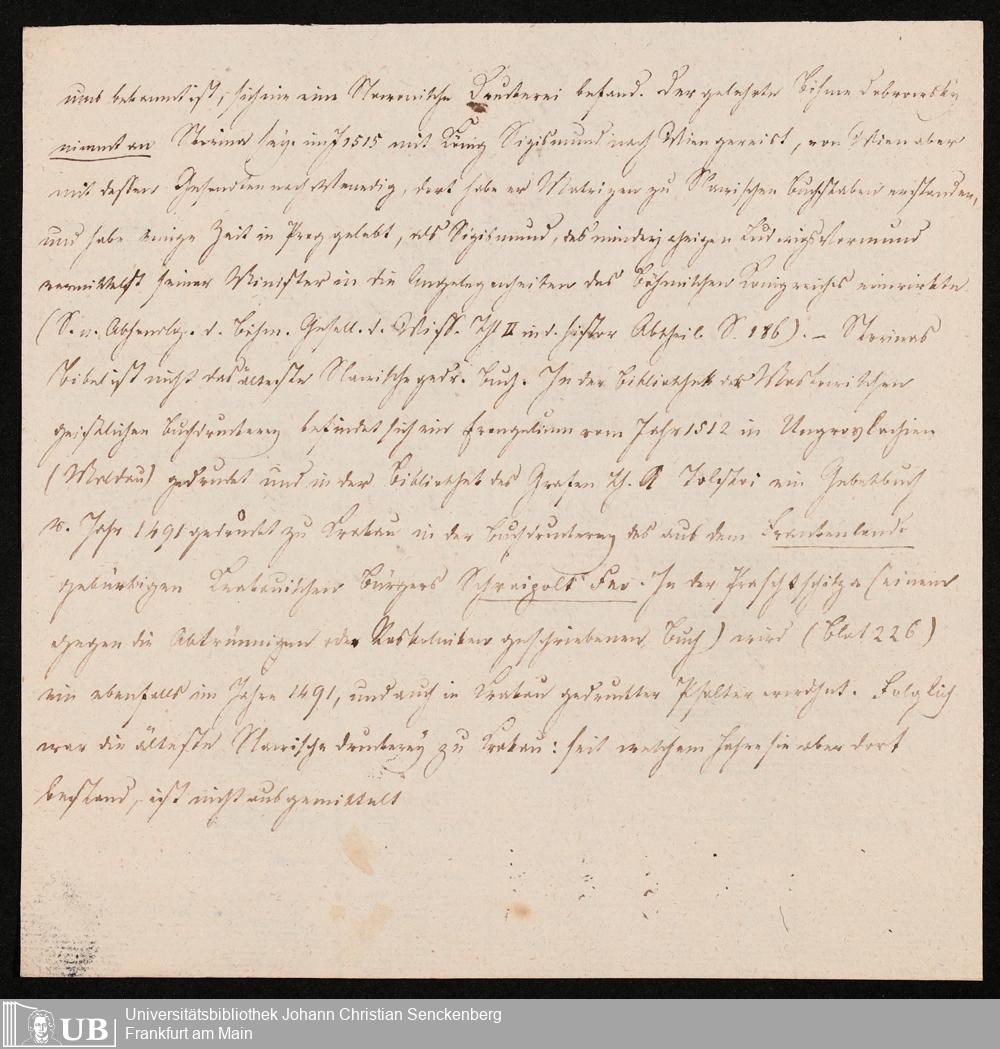 uns bekannt ist, sich nie eine Slawonische Druckerei befand. Der gelehrte Böhme Dobrowsky
nimmt an Skorina sey im J 1515 mit König Sigismund nach Wien gereist, von Wien aber
mit dessen Gesandten nach Venedig, dort habe er Matrizen zu Slawischen Buchstaben erstanden,
und habe einige Zeit in Prag gelebt, als Sigismund, des minderjährigen Ludwigs Vormund
vermittelst seiner Minister in die Angelegenheiten des Böhmischen Königreichs einwirkte
(S. n. Abhandlg. d. Böhm. Gesell. d. Wiss. Th II in d. histor Abtheil. S. 186). – Skorinas
Bibel ist nicht das älteste Slawische gedr. Buch. In der Bibliothek der Moskowischen
geistlichen Buchdruckerey befindet sich ein Evangelium vom Jahr 1512 in Ungrovlachien
(Moldau) gedruckt und in der Bibliothek des Grafen Th. A Tolstoi ein Gebetbuch
v. Jahr 1491 gedruckt zu Krakau in der Buchdruckerey des aus dem Frankenlande
gebürtigen Krakauischen Bürgers Schwaipolt Feo. In der Praschtschitza (einem
gegen die Abtrünnigen oder Raskolniken geschriebenen Buch) wird (Blat 226)
ein ebenfalls im Jahre 1491, und auch in Krakau gedruckter Psalter erwähnt. Folglich
war die älteste Slawische Druckerey zu Krakau: seit welchem Jahre sie aber dort
bestand, ist nicht ausgemittelt
UB Universitätsbibliothek Johann Christian Senckenberg
Frankfurt am Main